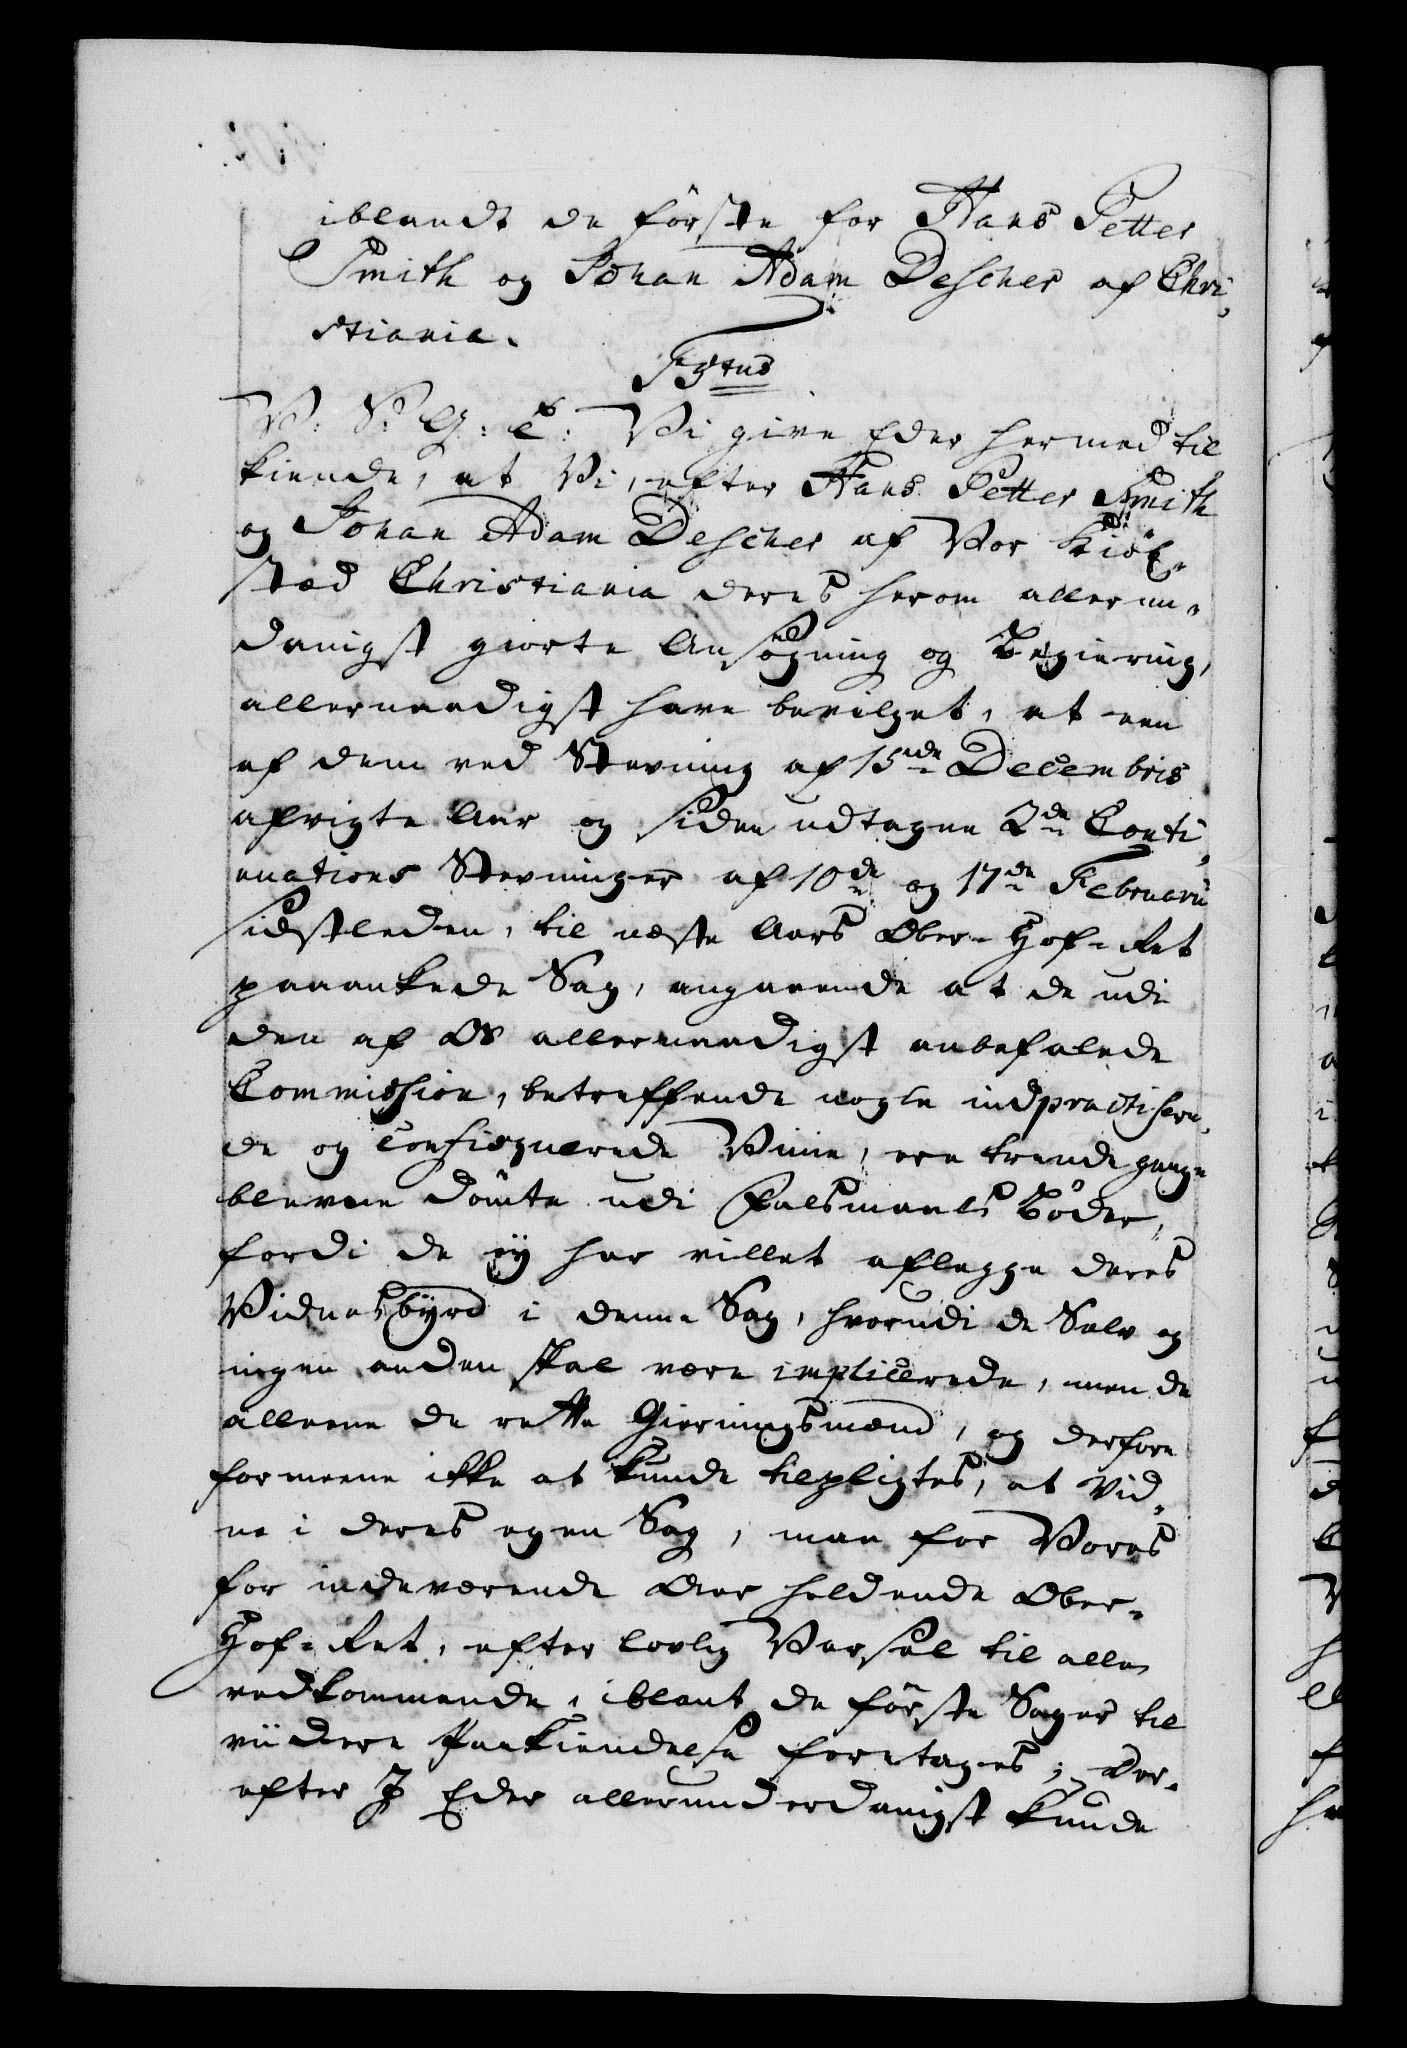 iblandt de förste for Hans Petter
Smith og Johan Adam Descher af Chri,
stiania.
V: S: G: T: Vi give Eder hermed til
kiende, at Vi, efter Hans Petter Smith
og Johan Adam Descher af Vor Kiöb-
stæd Christiania deres herom allerun-
danigst giorte Ansögning og Begiering,
allernaadigst have bevilget, at een
af dem ved Stevning af 15de Decembris
afvigte Aar og siden udtagne 2de Conti,
nuations Stevninger af 10de og 17de Februarii
sidstleden, til næste Aars Ober-Hof-Ret
paaankede Sag, angaaende at de udi
den af Os allernaadigst anbefalede
Commission, betreffende nogle indpractisere,
de og confisquerede Viine, ere trende gange
blevne dömte udi Falsmaals Böder,
fordi de ey har villet aflegge deres
Vidnesbyrd i denne Sag, hvorudi de Selv og
ingen anden skal være implicerede, men de
alleene de rette Gierningsmænd, og derfore
formeene ikke at kunde tilpligtes, at Vid,
ne i deres egen Sag, maa for Vores
for indeværende Aar holdende Ober-
Hof-Ret, efter lovlig Varsel til alle
vedkommende, iblant de förste Sager til
viidere Paakiendelse foretages; Der-
efter I Eder allerunderdanigst kunde